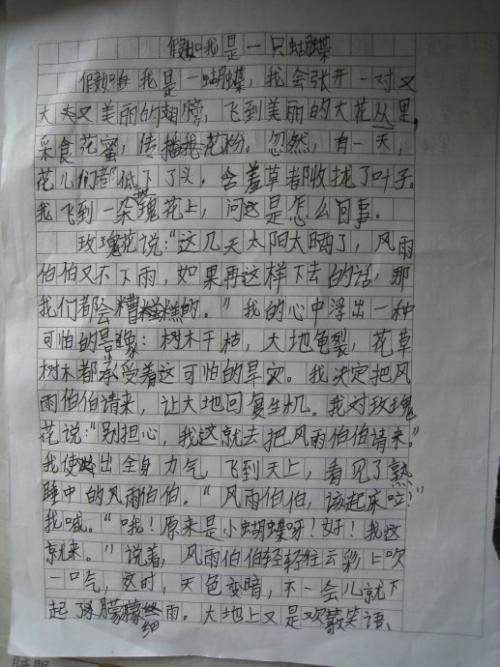 假如我是一只蝴蝶
假如我是一蝴蝶，我会张开一对又
大又美丽的翅膀，飞到美丽的大花丛里，
采食花蜜，传播花粉。忽然，有一天，
花儿们都低下了头，含羞草都收拢了叶子。
我飞到一朵玫瑰花上，问这是怎么回事。
玫瑰花说：“这几天太阳大晒了，风雨
伯伯又不下雨，如果再这样下去的话，那
我们都会糟糕的。”我的心中浮出一种
可怕的景象：树木干枯，大地龟裂，花草
树木都承受着这可怕的旱灾。我决定把风
雨伯伯请来，让大地回复生机。我对玫瑰
花说：“别担心，我这就去把风雨伯伯请来。”
我使出全身力气，飞到天上，看见了熟
睡中的风雨伯伯。“风雨伯伯，该起床啦！”
我喊。“哦！原来是小蝴蝶呀！好！我这
就来。”说着，风雨伯伯轻轻往云彩上吹
一口气，及时，天色变暗，不一会儿就下
起了朦朦细雨。大地上又是欢歌笑语、